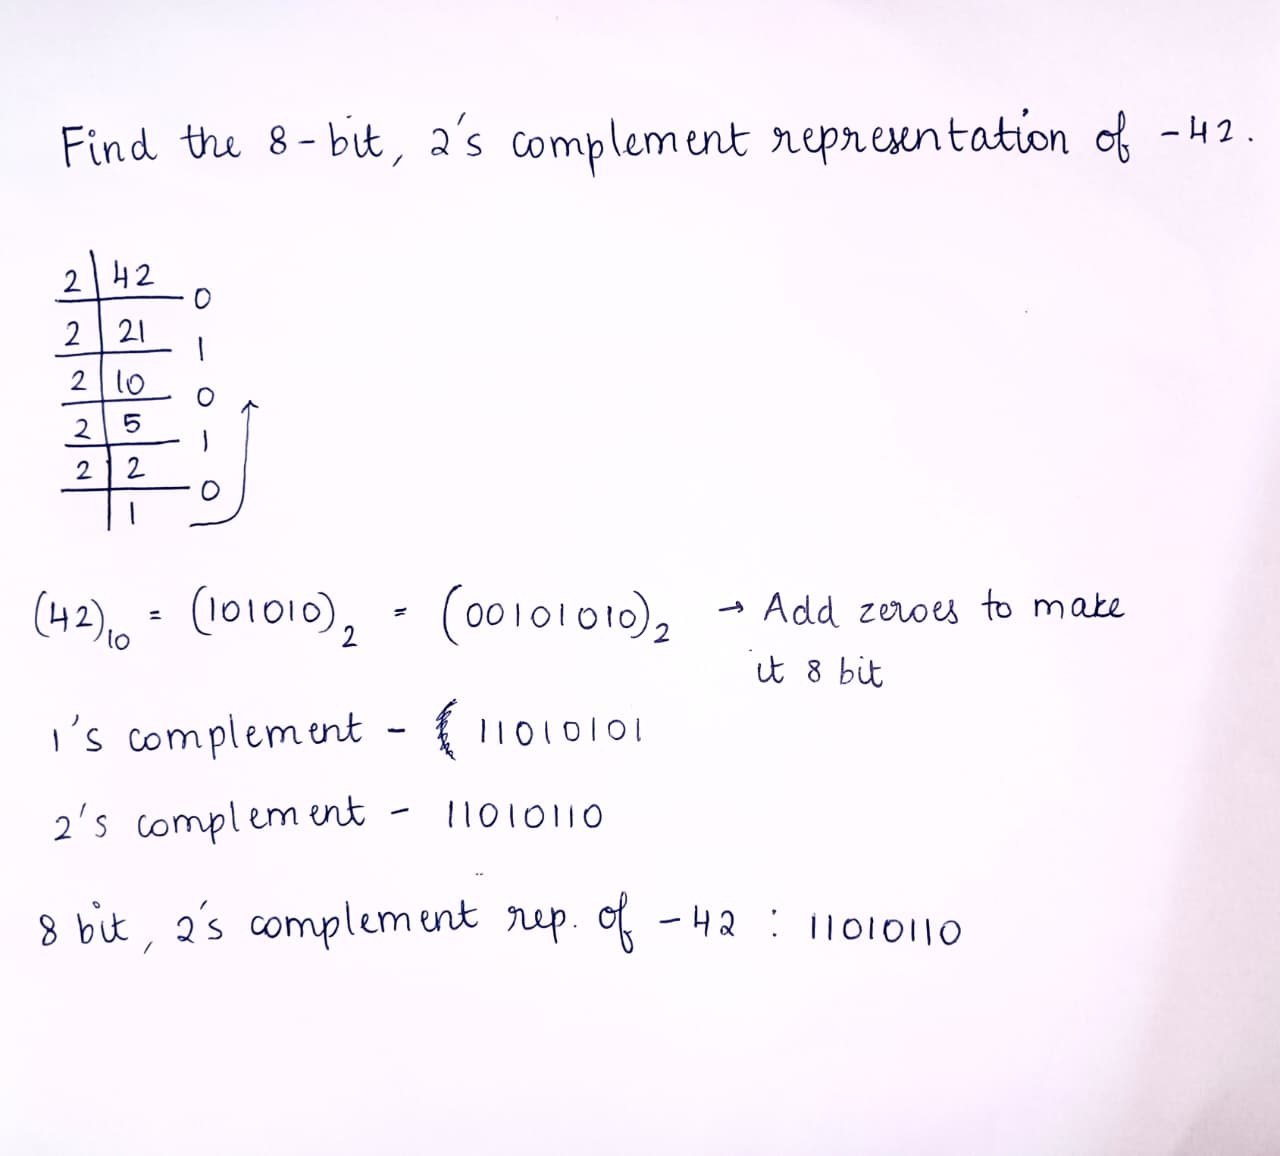 Find the 8-bit, 2's complement representation of -42.
2 42 0
2 21 1
2 10 0
2 5 1
2 2 0
1
(42)₁₀ = (101010)₂ = (00101010)₂ → Add zeroes to make
it 8 bit
1's complement - 11010101
2's complement - 11010110
8 bit, 2's complement rep. of -42 : 11010110